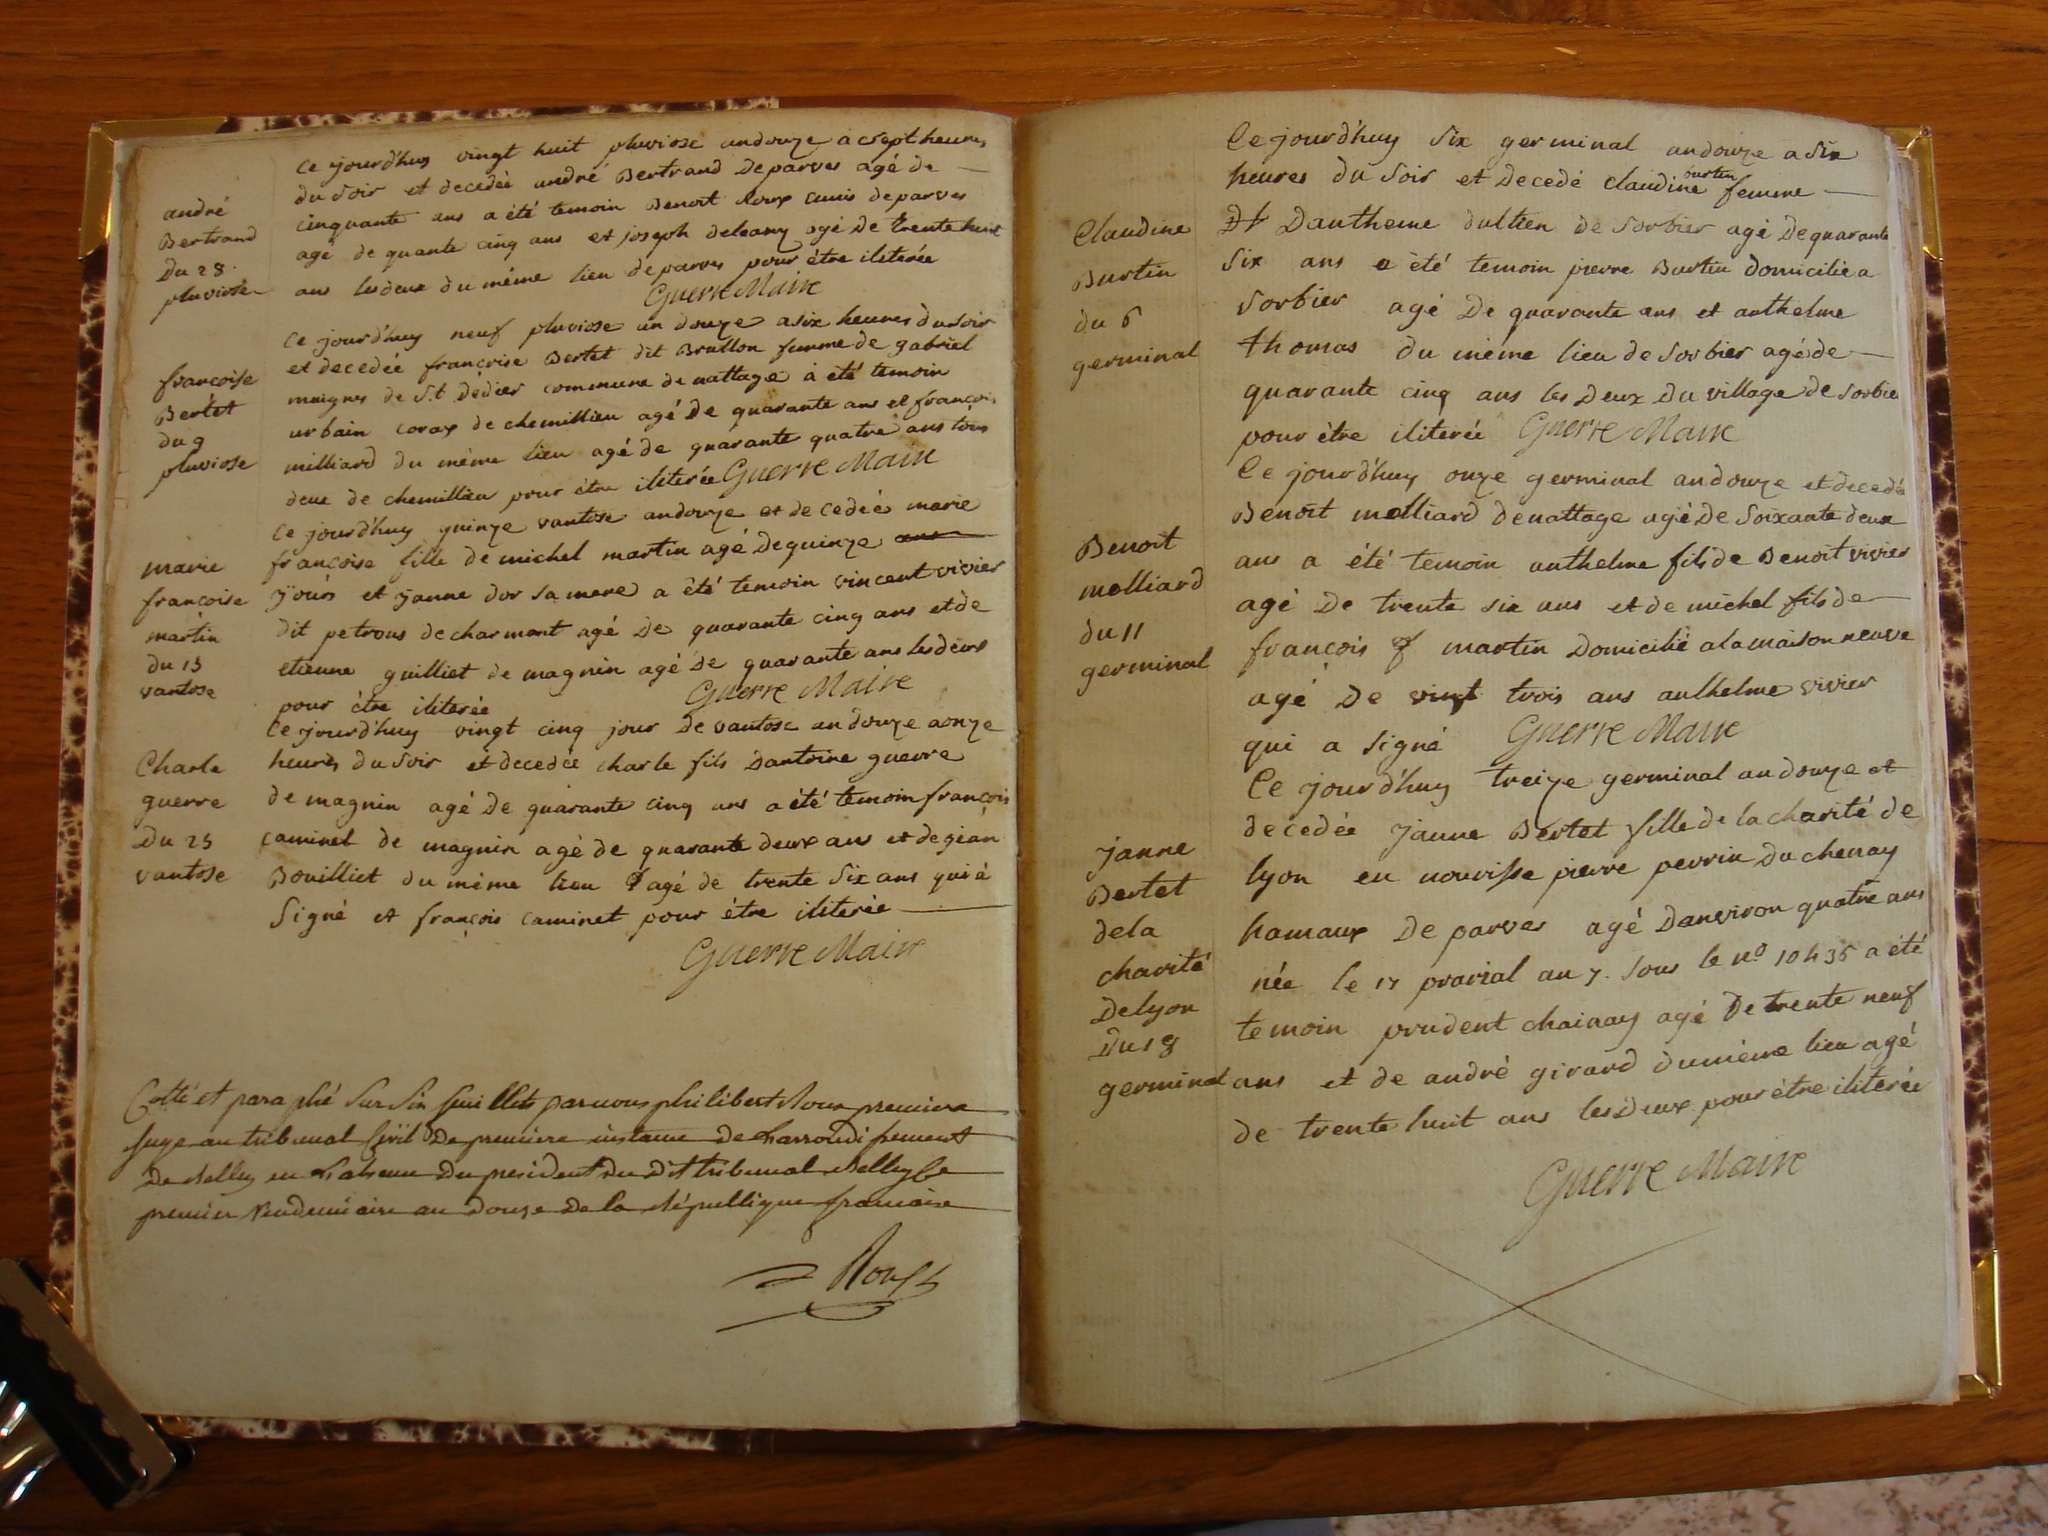 andré
Bertrand
du 28
pluviose
Ce jourd'huy vingt huit pluviose andouze a sept heures
du soir et decedée andré Bertrand de parves agé de
cinquante ans a été temoin Benoit Roux de parves
agé de quante cinq ans et joseph delaamy agé de trente huit
ans les deux du même lieu de parves pour être iliterée
Guerre Maire
françoise
Bertet
du 9
pluviose
Ce jourd'huy neuf pluviose an douze a six heures du soir
et decedée françoise Bertet dit Brullon femme de gabriel
muignes de St didier commune de nattage à été temoin
urbain corax de chemillieu agé de quarante ans et françois
milliard du même lieu agé de quarante quatre ans tous
deux de chemillieu pour être iliterée Guerre Maire
marie
françoise
martin
du 15
vantose
Ce jourd'huy quinze vantose andouze et decedée marie
françoise fille de michel martin agé de quinze
jours et janne dor sa mere a été temoin vincent vivier
dit petrous de charmont agé de quarante cinq ans et de
etienne guilliet de magnin agé de quarante ans les deux
pour être iliterée Guerre Maire
Charle
guerre
du 25
vantose
Ce jourd'huy vingt cinq jour de vantose an douze a onze
heures du soir et decedée charle fils dantoine guerre
de magnin agé de quarante cinq ans a été temoin françois
caminet de magnin agé de quarante deux ans et de gean
Bouilliet du même lieu agé de trente six ans qui à
signé et françois caminet pour être iliterée
Guerre Maire
Cotté et paraphé sur six feuillets par nous philibert Roux premier
juge au tribunal civil de premiere instance de larrondissement
de Belley en l'absence du president du dit tribunal Belley le
premier vendemiaire an douze de la République francaise
Roux
Claudine
Burtin
du 6
germinal
Ce jourd'huy six germinal andouze a six
heures du soir et decedé claudine burtin femme
Dt Dantheme dultien de sorbier agé de quarante
six ans a été temoin pierre Burtin domicilié a
sorbier agé de quarante ans et anthelme
thomas du même lieu de sorbier agé de
quarante cinq ans les deux du village de sorbie
pour être iliterée Guerre Maire
Benoit
molliard
du 11
germinal
Ce jourd'huy onze germinal andouze et decedé
Benoit molliard denattage agé de soixante deux
ans a été temoin anthelme fils de Benoit vivier
agé de trente six ans et de michel fils de
françois martin domicilié a la maison neuve
agé de vingt trois ans anthelme vivier
qui a signé Guerre Maire
janne
Bertet
de la
charité
de lyon
du 18
germinal
Ce jourd'huy treize germinal an douze et
decedée janne Bertet fille de la charité de
lyon en nourisse pierre perrin du chenay
hamaux de parves agé danviron quatre ans
née le 17 prarial an 7. sous le n° 10435 a été
temoin prudent chainay agé de trente neuf
ans et de andré girard du même lieu agé
de trente huit ans les deux pour être iliterée
Guerre Maire